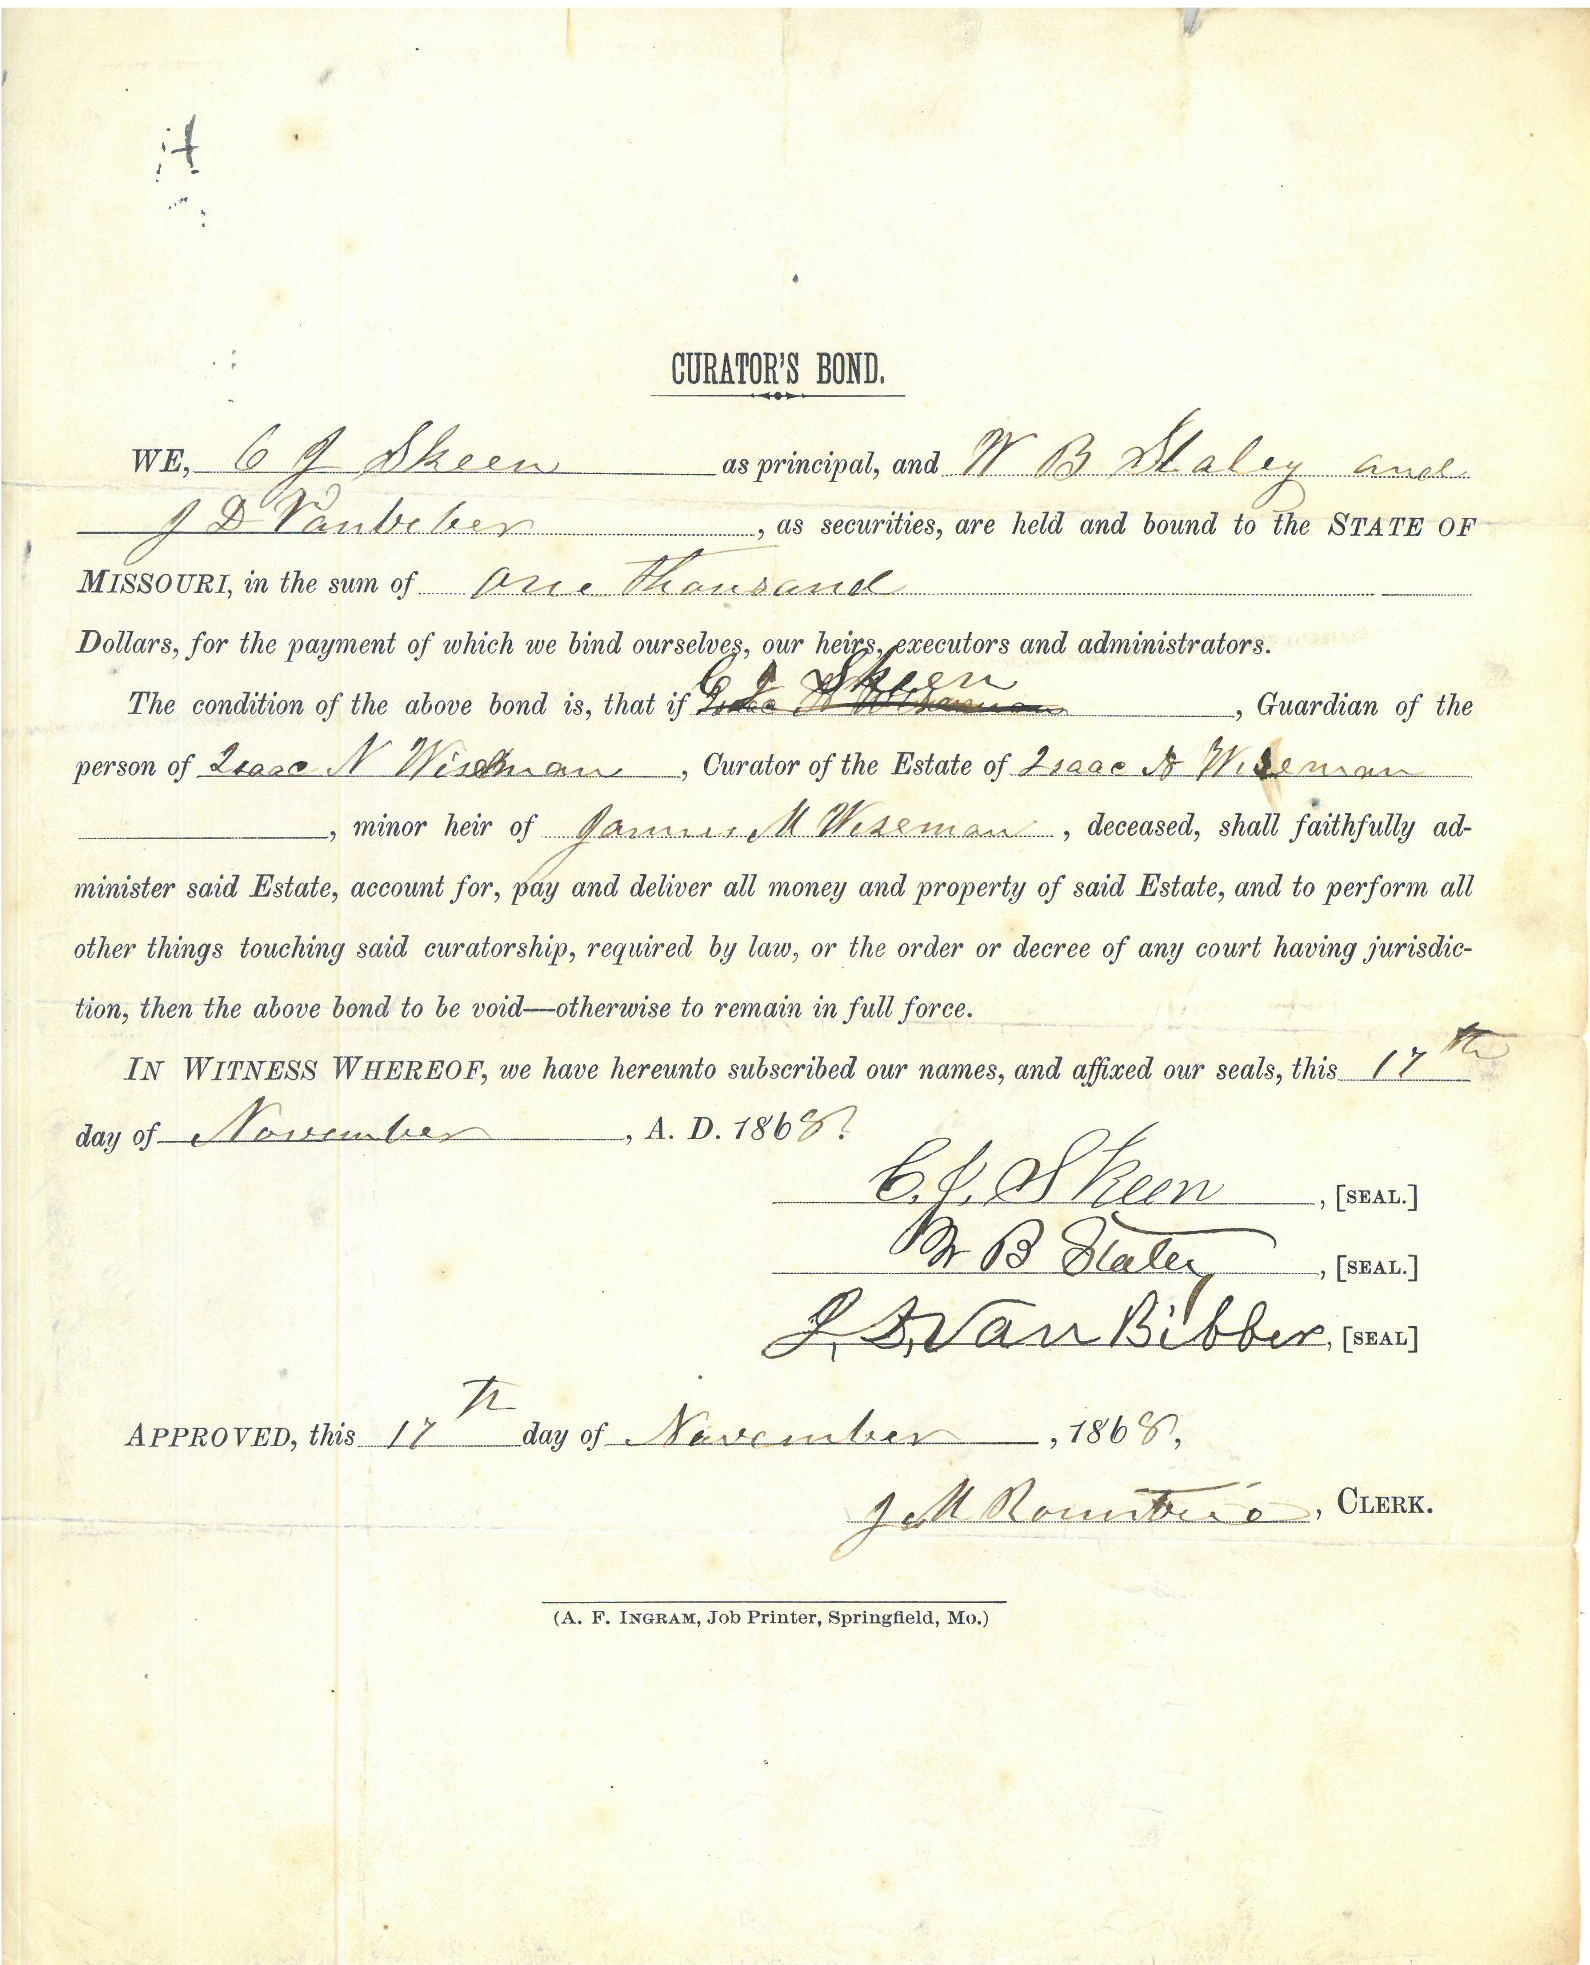 CURATOR'S BOND.
WE, C J Skeen as principal, and W B Staley and
J D Vanbeber, as securities, are held and bound to the STATE OF
MISSOURI, in the sum of one thousand
Dollars, for the payment of which we bind ourselves, our heirs, executors and administrators.
C J Skeen
The condition of the above bond is, that if Isaac N Wiseman, Guardian of the
person of Isaac N Wiseman, Curator of the Estate of Isaac N Wiseman
, minor heir of James M Wiseman, deceased, shall faithfully ad-
minister said Estate, account for, pay and deliver all money and property of said Estate, and to perform all
other things touching said curatorship, required by law, or the order or decree of any court having jurisdic-
tion, then the above bond to be void—otherwise to remain in full force.
IN WITNESS WHEREOF, we have hereunto subscribed our names, and affixed our seals, this 17th
day of November, A. D. 1868.
C. J. Skeen, [SEAL.]
W B Staley, [SEAL.]
J. D. Van Bibber, [SEAL]
APPROVED, this 17th day of November, 1868,
J M Rountree, CLERK.
(A. F. INGRAM, Job Printer, Springfield, Mo.)